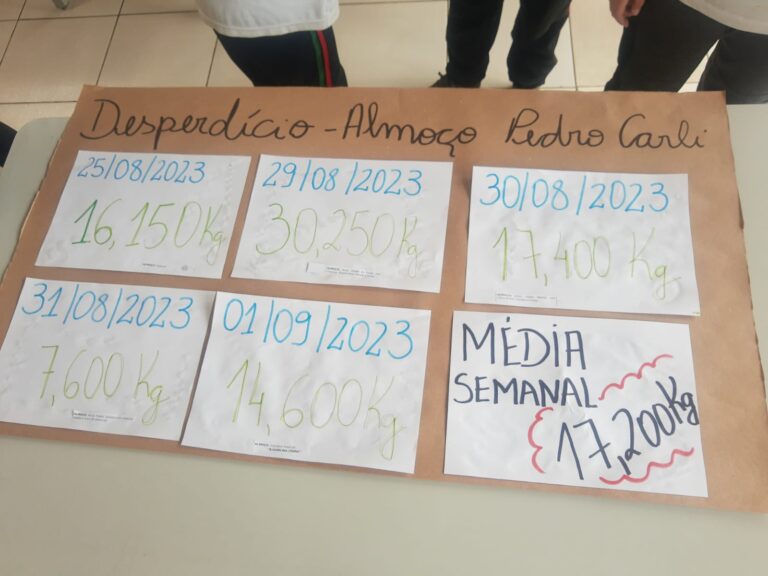 Desperdício - Almoço Pedro Carli
25/08/2023
16,150Kg
29/08/2023
30,250Kg
30/08/2023
17,400 Kg
31/08/2023
7,600 Kg
01/09/2023
14,600Kg
MÉDIA
SEMANAL
17,200Kg